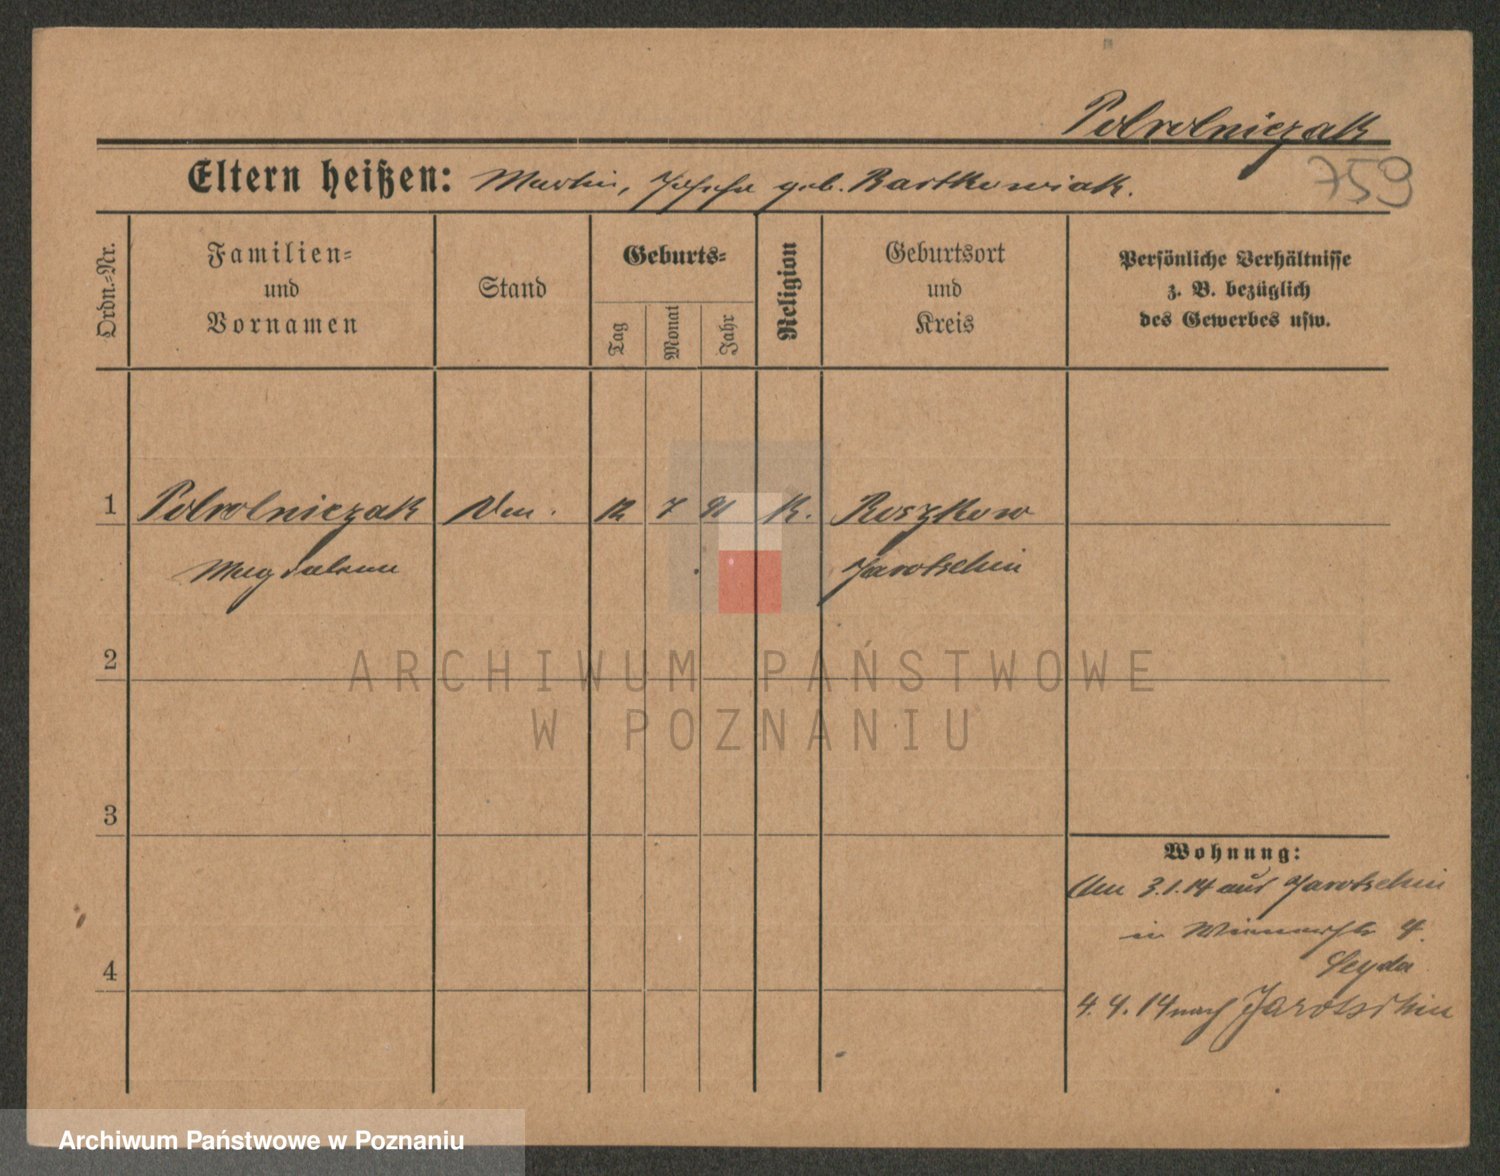 Polrolniczak
759
Eltern heißen: Martin, Josefa geb. Bartkowiak.
Ordn.-Nr.
Familien-
und
Vornamen
Stand
Geburts-
Tag
Monat
Jahr
Religion
Geburtsort
und
Kreis
Persönliche Verhältnisse
z. B. bezüglich
des Gewerbes usw.
1 Polrolniczak 12 7 91 K. Roszkow
Magdalena Jarotschin
2
3
4
Wohnung:
Am 3.1.14 aus Jarotschin
in 4.
Seyda
4. 4. 14 nach Jarotschin
ARCHIWUM PAŃSTWOWE
W POZNANIU
Archiwum Państwowe w Poznaniu